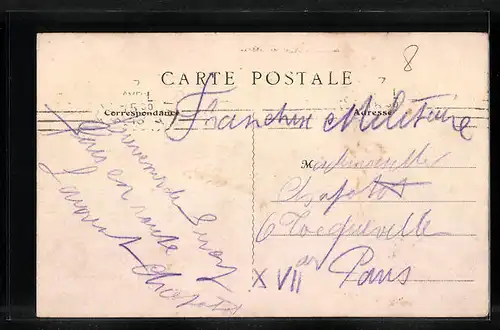 8
CARTE POSTALE
Correspondance
Adresse
Franchise Militaire
Souvenir de
Paris en route
Laurent Chapotot
M ademoiselle
Chapotot
6 Tocqueville
XVII Paris